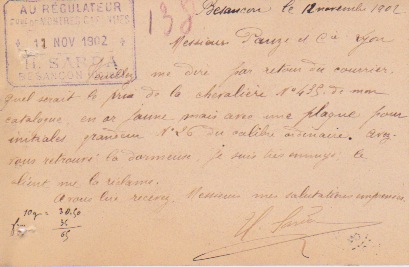 AU RÉGULATEUR
FABQUE DE MONTRES GARANTIES
11 NOV 1902
H. SARDA
BESANÇON
138
Besançon le 12 novembre 1902
Messieurs et Cie Lyon
Veuillez me dire par retour du courrier
quel serait le prix de la chevalière N° 435 de mon
catalogue, en or jaune mais avec une plaque pour
initiales grandeur N° 26 du calibre ordinaire. Avez
vous retrouvé la dormeuse, je suis très ennuyé, le
client me la réclame.
A vous lire recevez, Messieurs mes salutations empressées
H. Sarda
10 g = 30.50
35
65